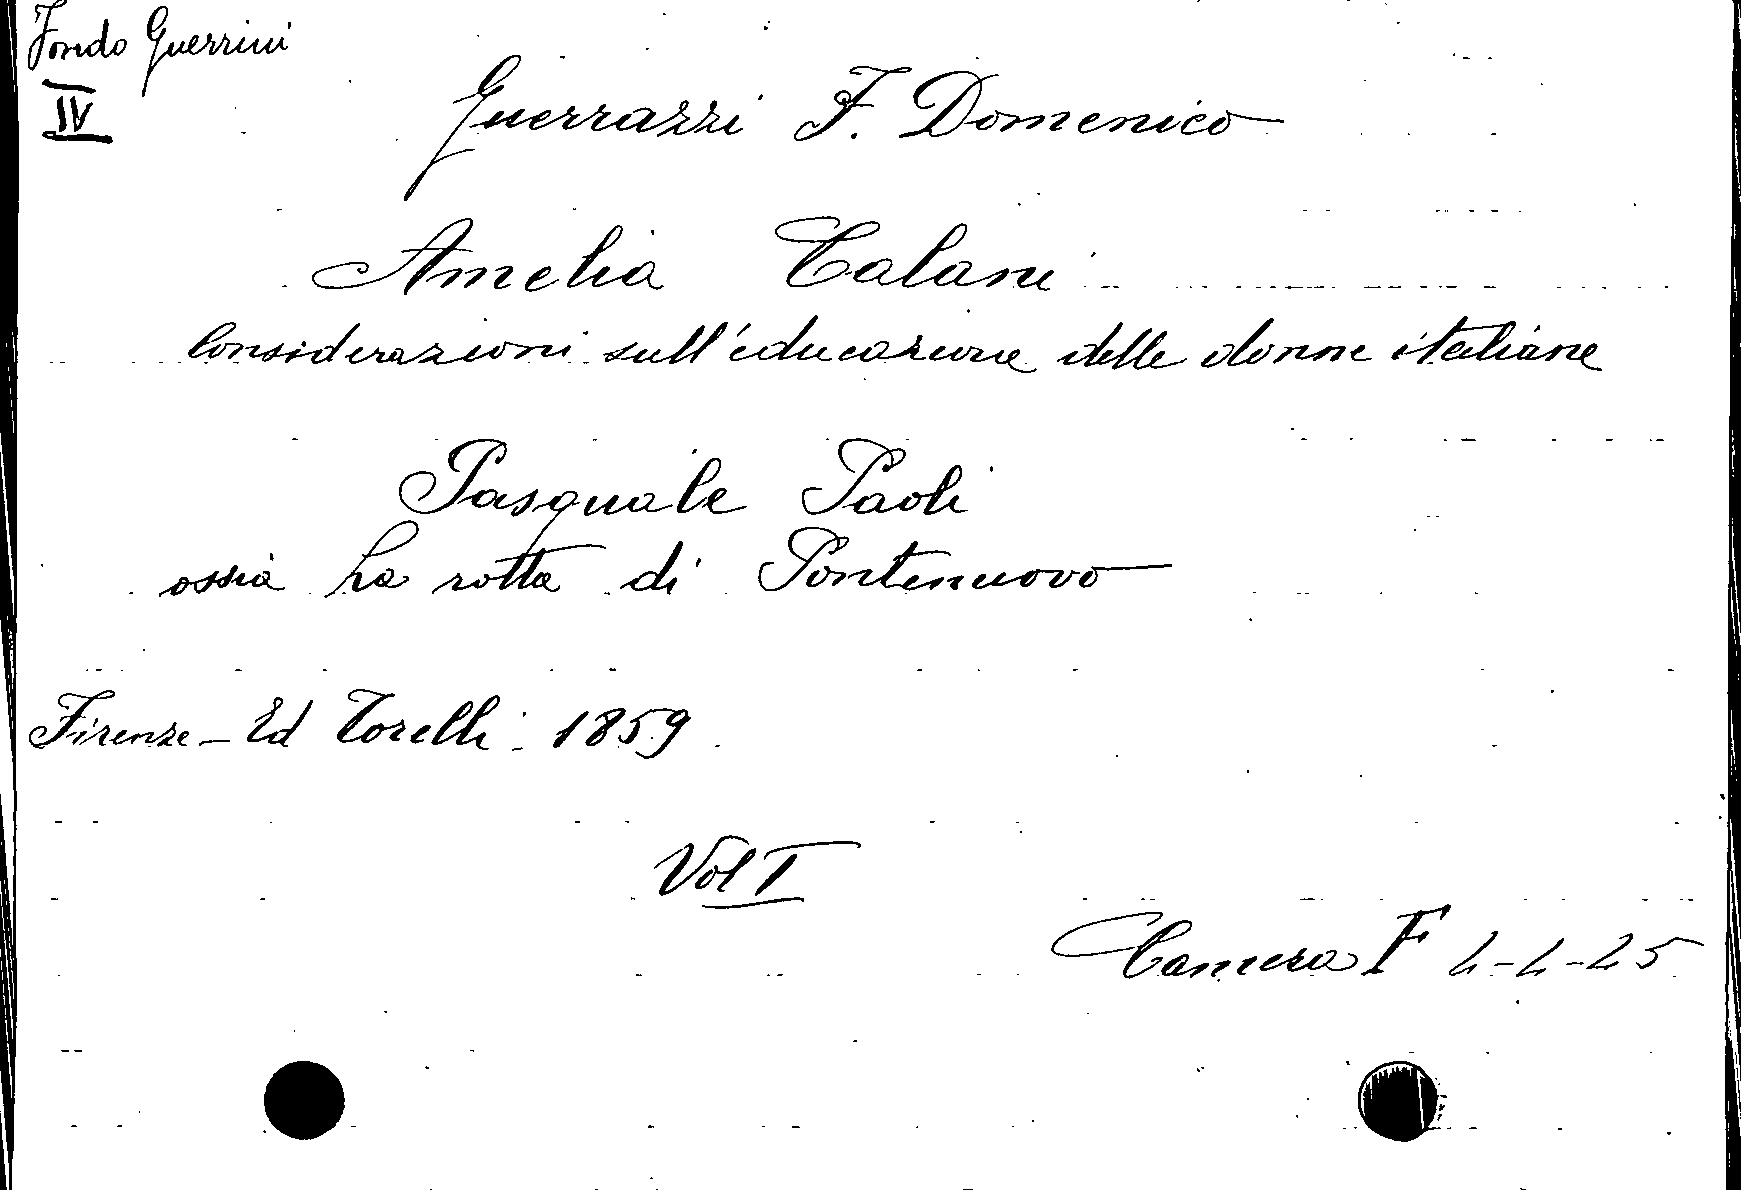 Fondo Guerrini
IV
Guerrazzi F. Domenico
Amelia Calani
Considerazioni sull'educazione delle donne italiane
Pasquale Paoli
ossia La rotta di Pontenuovo
Firenze - Ed Torelli - 1859
Vol I
Camera F 2-2-25